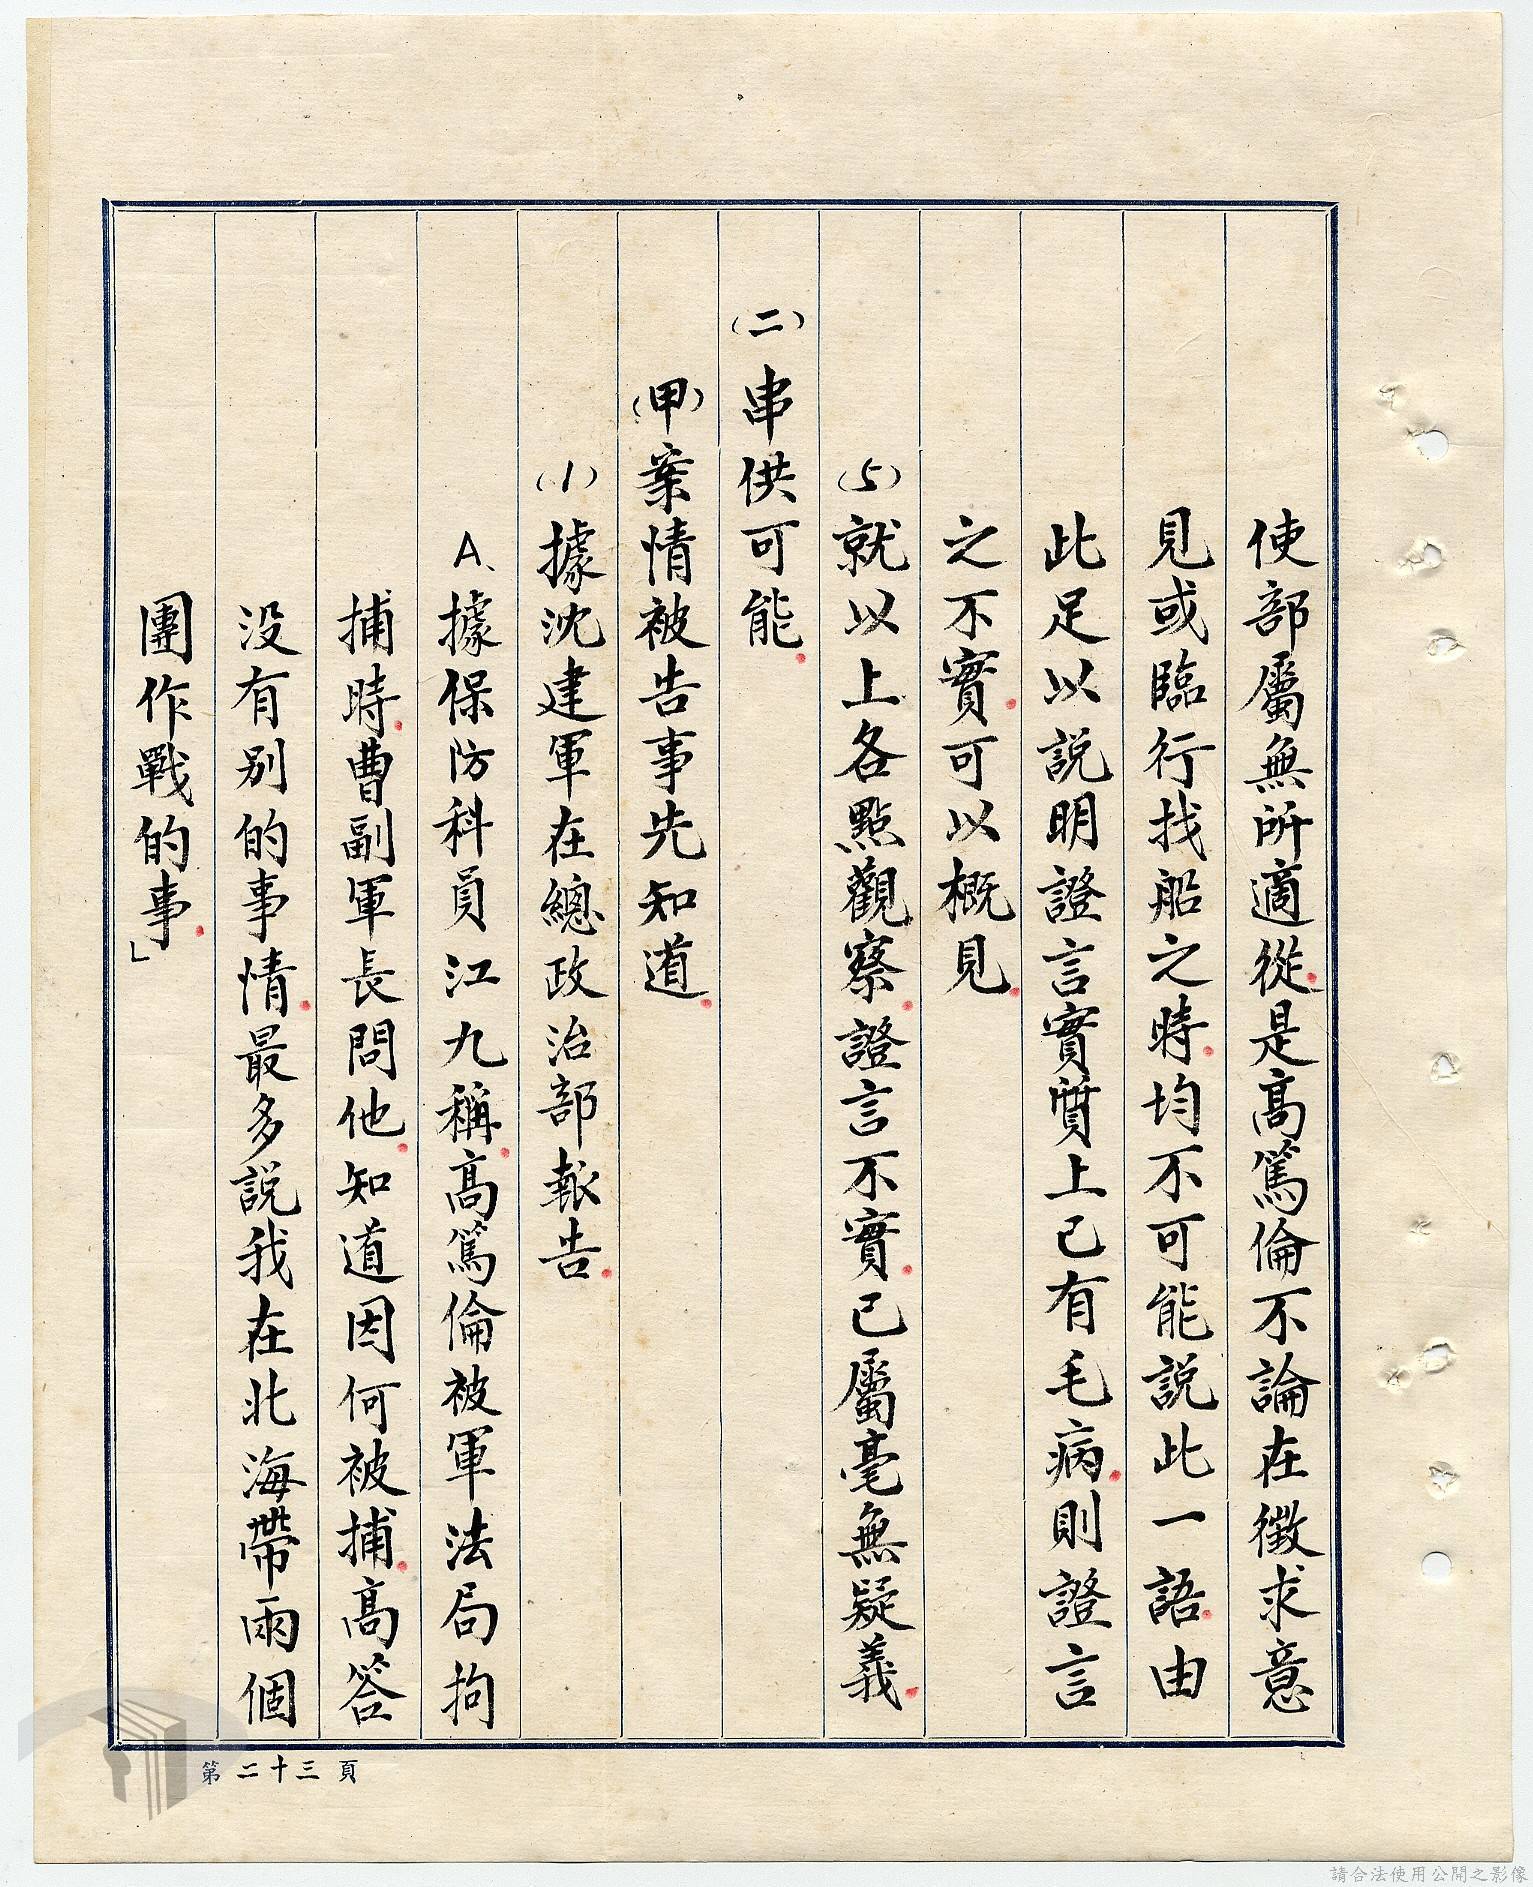 使部屬無所適從。是高篤倫不論在徵求意
見或臨行找船之時。均不可能說此一語。由
此足以說明證言實質上已有毛病。則證言
之不實。可以概見。
(5)就以上各點觀察。證言不實。已屬毫無疑義。
(二)串供可能。
(甲)案情被告事先知道。
(1)據沈建軍在總政治部報告。
A、據保防科員江九稱。高篤倫被軍法局拘
捕時。曹副軍長問他。知道因何被捕。高答
没有别的事情。最多說我在北海帶兩個
團作戰的事。」
第二十三頁
請合法使用公開之影像